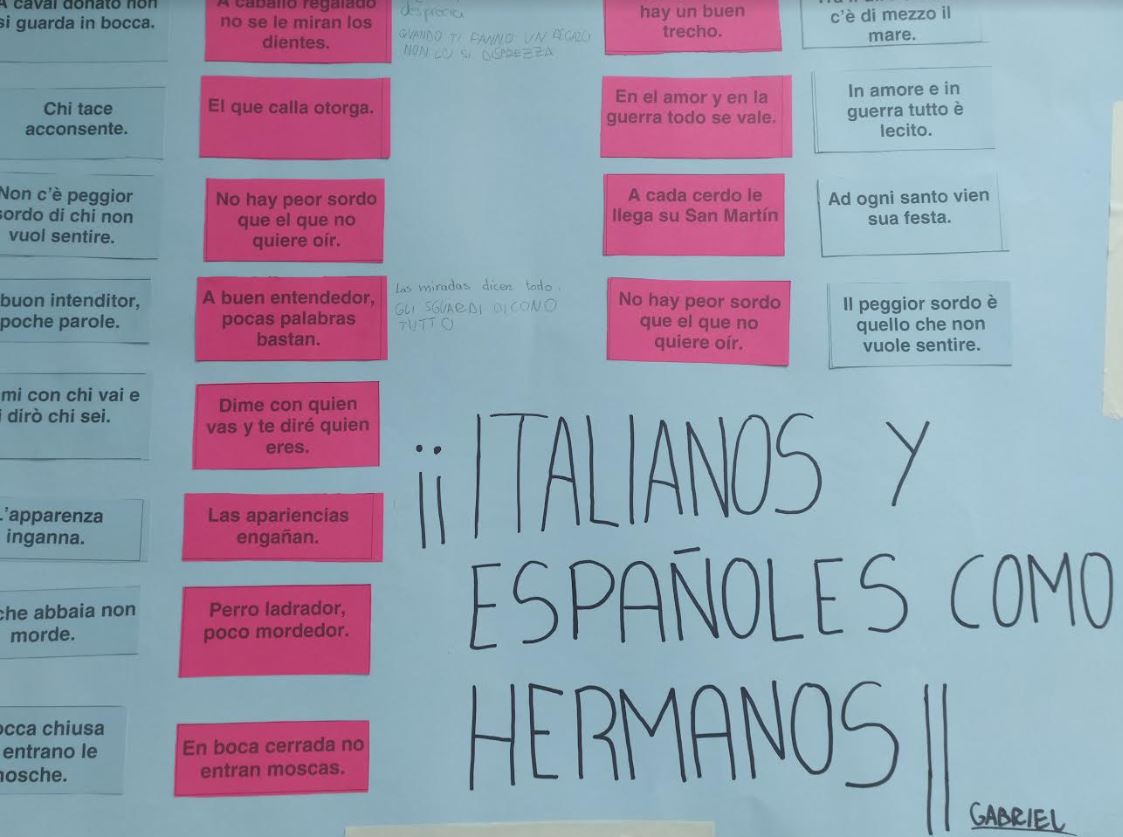 A caval donato non
si guarda in bocca.
Chi tace
acconsente.
Non c'è peggior
sordo di chi non
vuol sentire.
buon intenditor,
poche parole.
mi con chi vai e
i dirò chi sei.
L'apparenza
inganna.
che abbaia non
morde.
occa chiusa
entrano le
mosche.
A caballo regalado
no se le miran los
dientes.
El que calla otorga.
No hay peor sordo
que el que no
quiere oír.
A buen entendedor,
pocas palabras
bastan.
Dime con quien
vas y te diré quien
eres.
Las apariencias
engañan.
Perro ladrador,
poco mordedor.
En boca cerrada no
entran moscas.
desprecia
QUANDO TI FANNO UN REGALO
NON LO SI DISPREZZA
Las miradas dicen todo.
GLI SGUARDI DICONO
TUTTO
hay un buen
trecho.
En el amor y en la
guerra todo se vale.
A cada cerdo le
llega su San Martín
No hay peor sordo
que el que no
quiere oír.
c'è di mezzo il
mare.
In amore e in
guerra tutto è
lecito.
Ad ogni santo vien
sua festa.
Il peggior sordo è
quello che non
vuole sentire.
¡¡ITALIANOS Y
ESPAÑOLES COMO
HERMANOS!!
GABRIEL